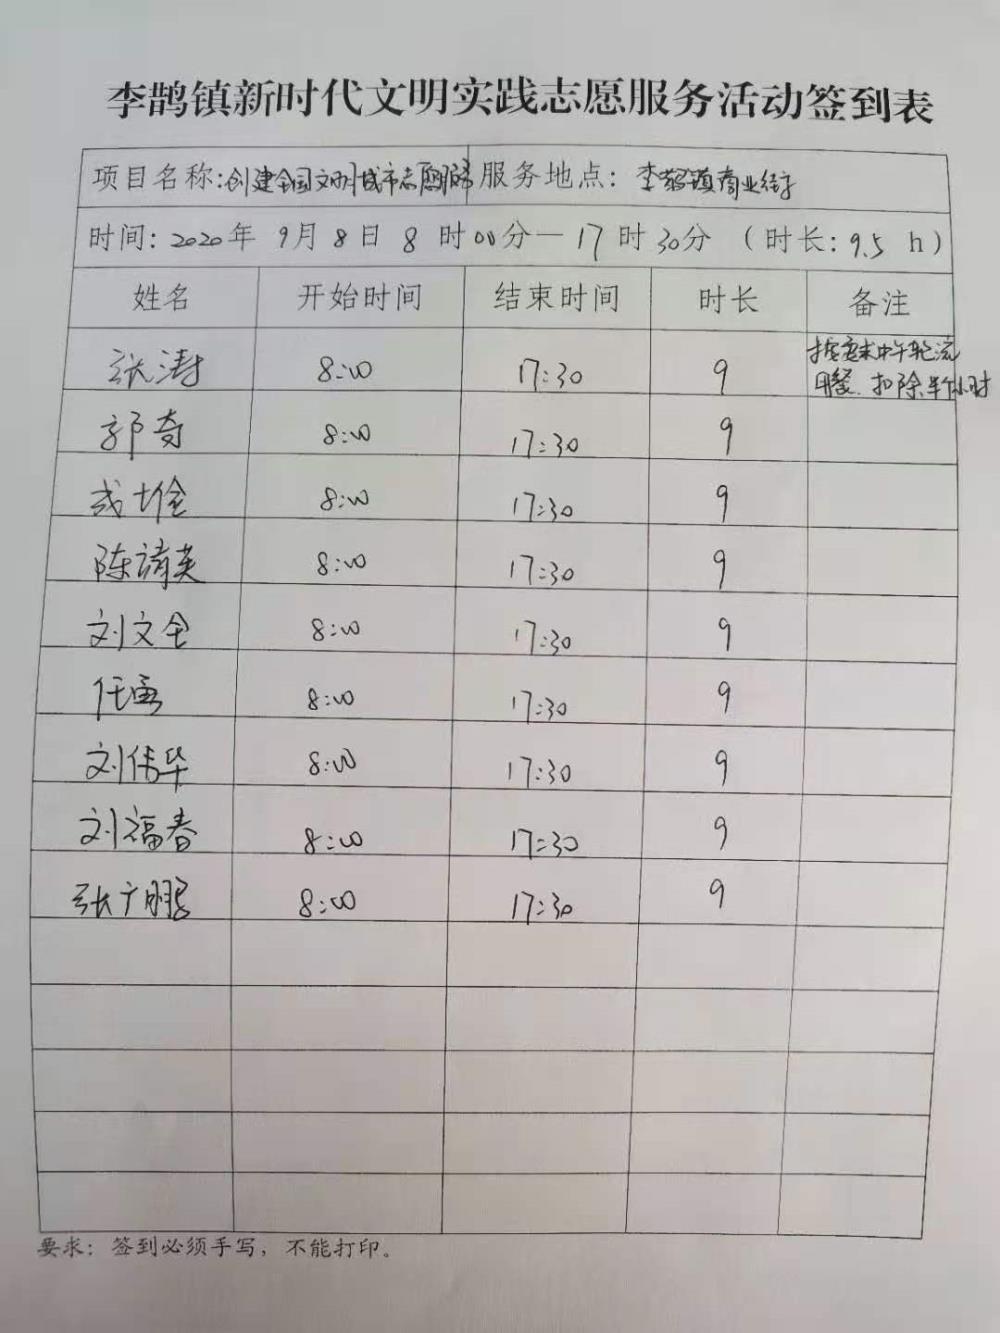 李鹊镇新时代文明实践志愿服务活动签到表
项目名称:创建全国文明城市志愿服务 服务地点：李鹊镇商业街
时间:2020年 9月8日 8 时00分—17时30分 (时长:9.5 h)
姓名 开始时间 结束时间 时长 备注
张涛 8:00 17:30 9 按要求中午轮流
用餐、扣除半个小时
郭奇 8:00 17:30 9
8:00 17:30 9
陈靖英 8:00 17:30 9
刘文全 8:00 17:30 9
任勇 8:00 17:30 9
刘伟华 8:00 17:30 9
刘福春 8:00 17:30 9
张广鹏 8:00 17:30 9
要求：签到必须手写，不能打印。